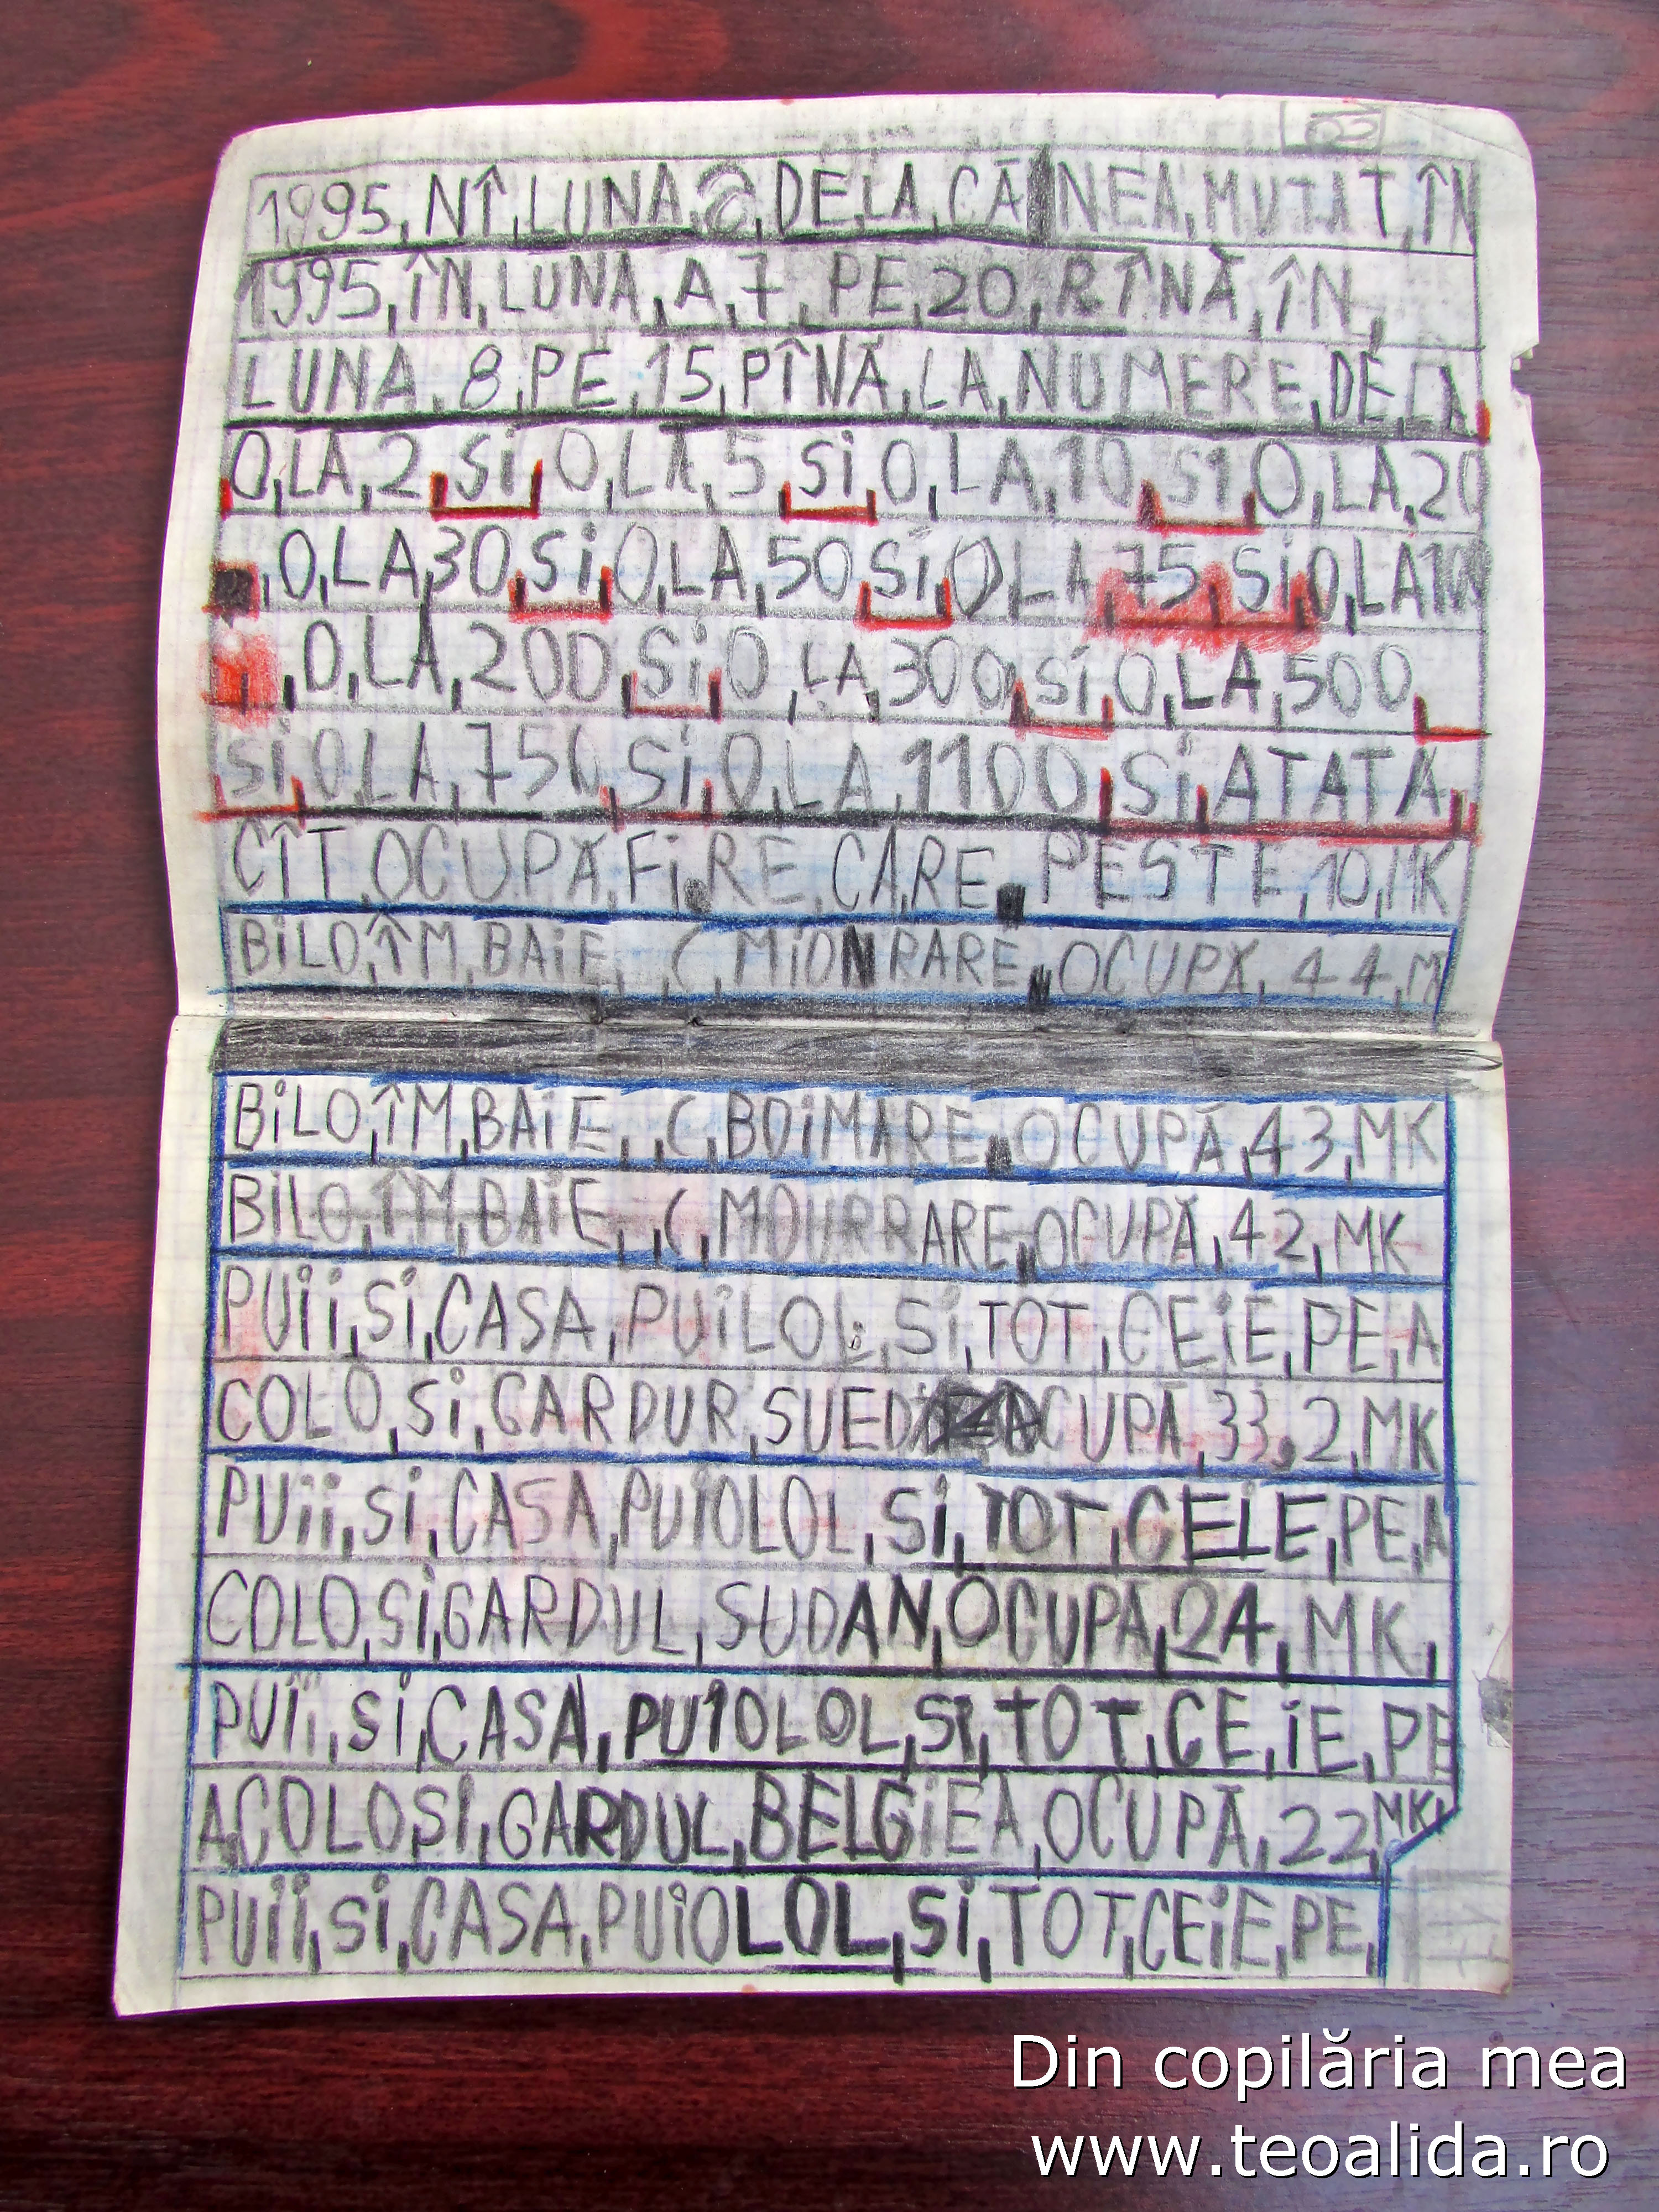 1995, NÎ, LUNA, DE, LA, CÂ NEA, MUTAT, ÎN
1995, ÎN, LUNA, A, 7, PE, 20, RÎNĂ, ÎN,
LUNA, 8, PE, 15, PÎNĂ, LA, NUMERE, DE, LA
0, LA, 2, Si, 0, LA, 5, Si, 0, LA, 10, Si, 0, LA, 20
, 0, LA, 30, Si, 0, LA, 50, Si, 0, LA, 75, Si, 0, LA 100
, 0, LA, 200, Si, 0, LA, 300, Si, 0, LA, 500,
Si, 0, LA, 750, Si, 0, LA, 1100, Si, ATATA,
CÎT, OCUPĂ, Fi, RE, CA, RE, PESTE, 10, MK
BiLO, ÎM, BAiE, , C, MiONRARE, OCUPĂ, 44, M
BiLO, ÎM, BAiE, , C, BOiMARE, OCUPĂ, 43, MK
BiLO, ÎM, BAiE, , C, MOURRARE, OCUPĂ, 42, MK
PUii, Si, CASA, PUiLOL, Si, TOT, CEiE, PE, A
COLO, Si, GARDUR, SUED OCUPĂ, 33, 2, MK
PUii, Si, CASA, PUiOLOL, Si, TOT, CELE, PE, A
COLO, Si, GARDUL, SUDAN, OCUPA, 24, MK,
PUii, Si, CASA, PUiOLOL, Si, TOT, CE, iE, PE
A, COLO, Si, GARDUL, BELGiEA, OCUPĂ, 22, MK,
PUii, Si, CASA, PUiOLOL, Si, TOT, CEiE, PE,
Din copilăria mea
www.teoalida.ro